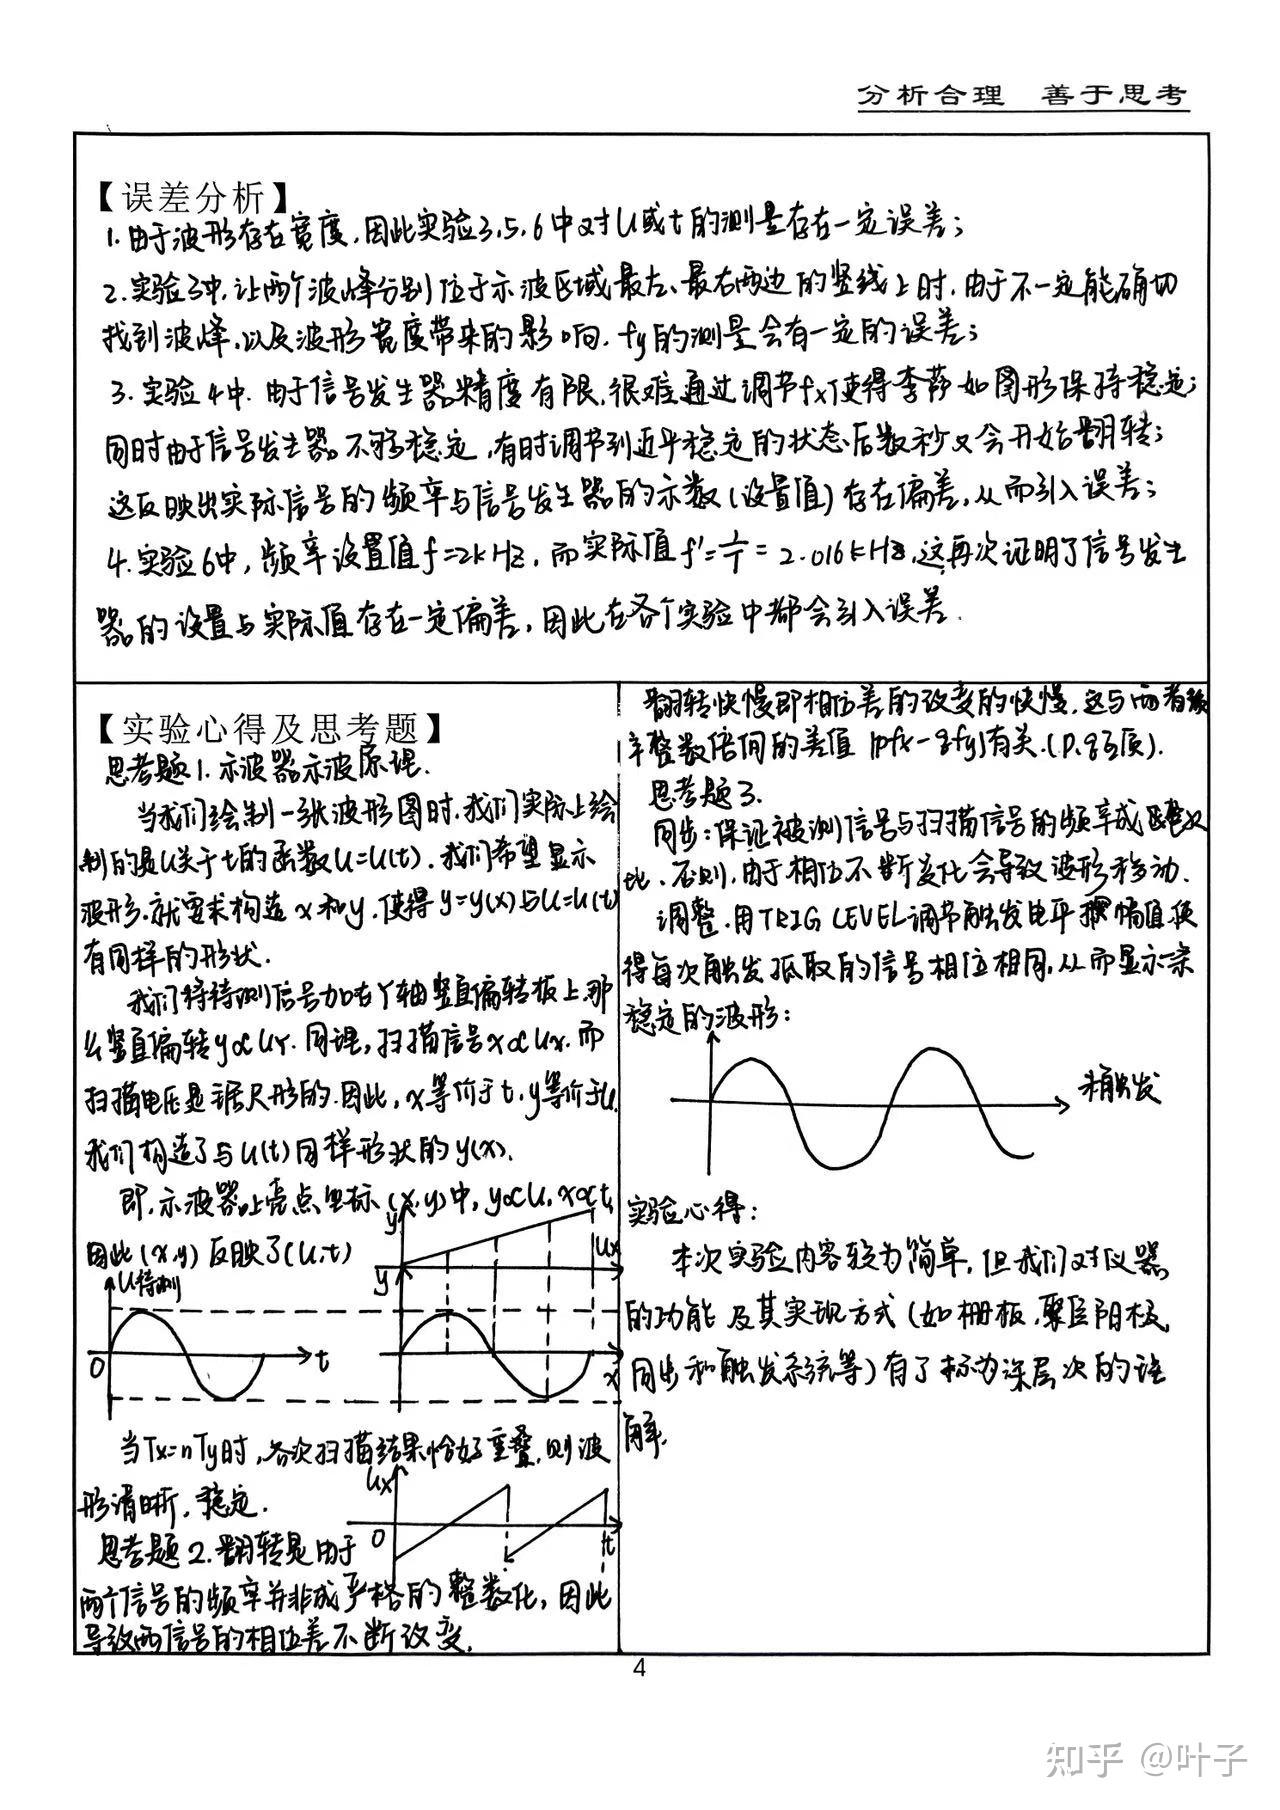 分析合理 善于思考
【误差分析】
1.由于波形存在宽度,因此实验3,5,6中对U或t的测量存在一定误差;
2.实验3中,让两个波峰分别位于示波区域最左、最右两边的竖线上时,由于不一定能确切
找到波峰,以及波形宽度带来的影响,fy的测量会有一定的误差;
3.实验4中.由于信号发生器精度有限,很难通过调节fx使得李萨如图形保持稳定;
同时由于信号发生器不够稳定,有时调节到近乎稳定的状态后数秒又会开始翻转;
这反映出实际信号的频率与信号发生器的示数(设置值)存在偏差,从而引入误差;
4.实验6中,频率设置值f=2kHz,而实际值f'=1/T=2.016kHz,这再次证明了信号发生
器的设置与实际值存在一定偏差,因此在各个实验中都会引入误差.
【实验心得及思考题】
思考题1.示波器示波原理.
当我们绘制一张波形图时,我们实际上绘
制的是U关于t的函数U=U(t).我们希望显示
波形,就要求构造x和y,使得y=y(x)与U=U(t)
有同样的形状.
我们将待测信号加在Y轴竖直偏转板上,那
么竖直偏转y∝UY.同理,扫描信号x∝Ux.而
扫描电压是锯尺形的.因此,x等价于t,y等价于U.
我们构造了与U(t)同样形状的y(x).
即,示波器上亮点坐标(x,y)中,y∝U,x∝t,
因此(x,y)反映了(U,t)
y
Ux
U待测
y
0
t
x
当Tx=nTy时,各次扫描结果恰好重叠,则波
形清晰,稳定.
Ux
0
t
思考题2.翻转是由于
两个信号的频率并非成严格的整数化,因此
导致两信号的相位差不断改变.
翻转快慢即相位差的改变的快慢,这与两者频
率整数倍间的差值|pfx-qfy|有关.(p,q互质).
思考题3.
同步:保证被测信号与扫描信号的频率成整数
比.否则,由于相位不断变化会导致波形移动.
调整.用TRIG LEVEL调节触发电平幅值,使
得每次触发抓取的信号相位相同,从而显示一条
稳定的波形:
未触发
实验心得:
本次实验内容较为简单,但我们对仪器
的功能及其实现方式(如栅极,聚焦阳极,
同步和触发系统等)有了极为深层次的理
解.
4
知乎 @叶子